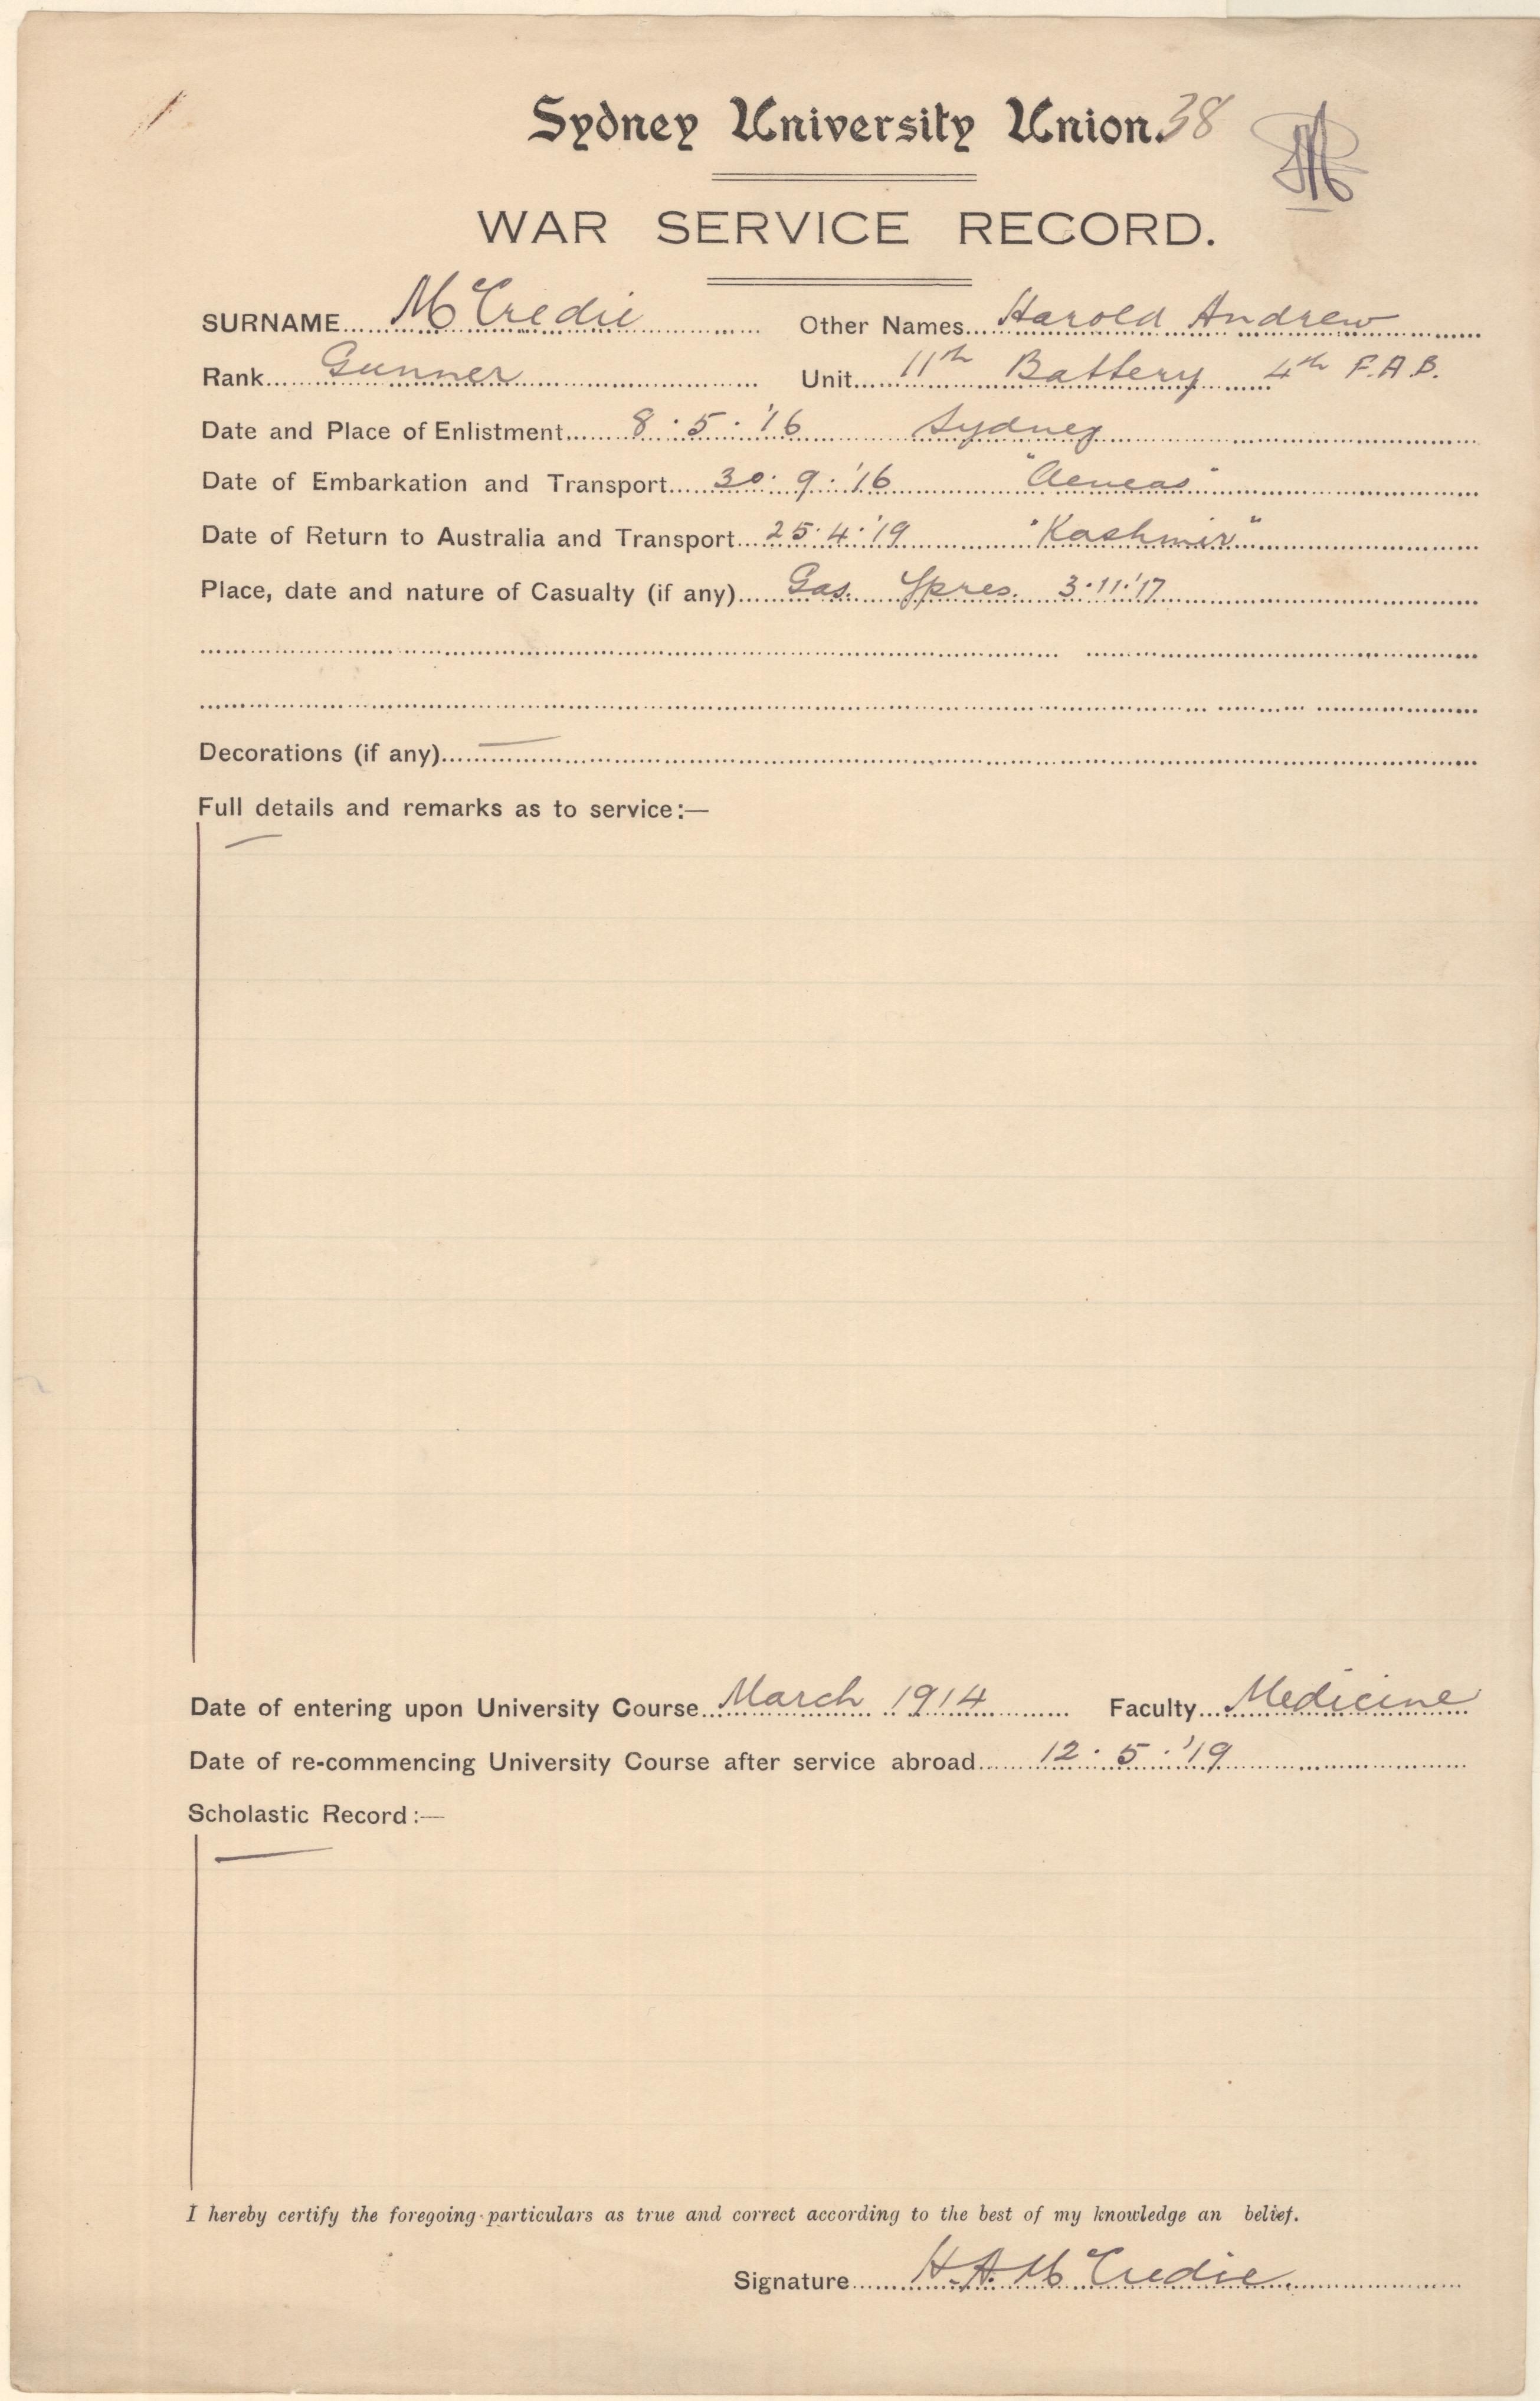 Sydney University Union. 38
WAR SERVICE RECORD.
SURNAME McCredie Other Names Harold Andrew
Rank Gunner Unit 11th Battery 4th F.A.B.
Date and Place of Enlistment 8.5.'16 Sydney
Date of Embarkation and Transport 30.9.'16 "Aeneas"
Date of Return to Australia and Transport 25.4.'19 "Kashmir"
Place, date and nature of Casualty (if any) Gas. Ypres. 3.11.'17
Decorations (if any) —
Full details and remarks as to service:—
—
Date of entering upon University Course March 1914 Faculty Medicine
Date of re-commencing University Course after service abroad 12.5.'19
Scholastic Record:—
—
I hereby certify the foregoing particulars as true and correct according to the best of my knowledge an belief.
Signature H.A. McCredie.